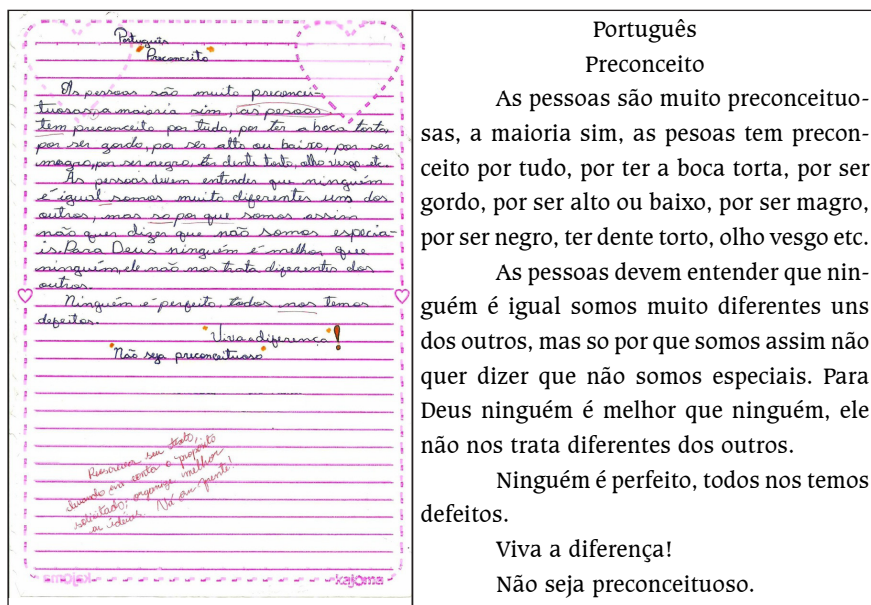 Português
"Preconceito"
As pessoas são muito preconcei-
tuosas, a maioria sim, as pesoas
tem preconceito por tudo, por ter a boca torta,
por ser gordo, por ser alto ou baixo, por ser
magro, por ser negro, ter dente torto, olho vesgo etc.
As pessoas devem entender que ninguém
é igual somos muito diferentes uns dos
outros, mas so por que somos assim
não quer dizer que não somos especia-
is. Para Deus ninguém é melhor que
ninguém, ele não nos trata diferentes dos
outros.
Ninguém é perfeito, todos nos temos
defeitos.
"Viva a diferença"!
"Não seja preconceituoso"
Reescreva seu texto,
levando em conta o propósito
solicitado; organize melhor
as ideias. Vá em frente!
kajoma
kajoma
Português
Preconceito
As pessoas são muito preconceituo-
sas, a maioria sim, as pesoas tem precon-
ceito por tudo, por ter a boca torta, por ser
gordo, por ser alto ou baixo, por ser magro,
por ser negro, ter dente torto, olho vesgo etc.
As pessoas devem entender que nin-
guém é igual somos muito diferentes uns
dos outros, mas so por que somos assim não
quer dizer que não somos especiais. Para
Deus ninguém é melhor que ninguém, ele
não nos trata diferentes dos outros.
Ninguém é perfeito, todos nos temos
defeitos.
Viva a diferença!
Não seja preconceituoso.